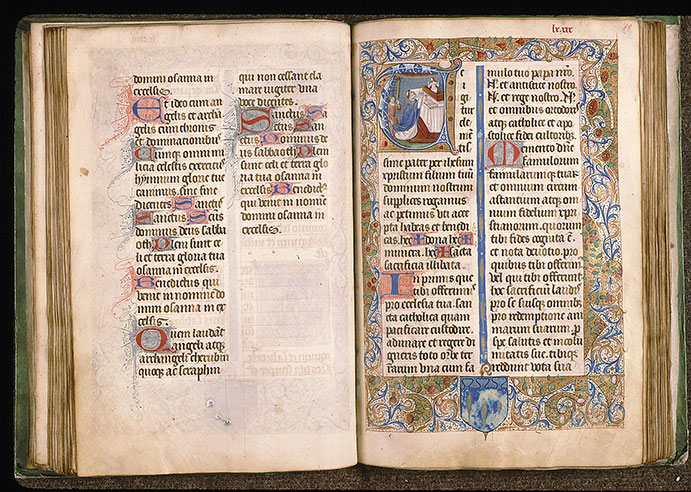 domini osanna in
excelsis.
Et ideo cum an
gelis et archā
gelis cum thronis
et dominationibꝰ
Cumqꝫ omni mi
licia celestis exercitꝰ
hymnum glorie tue
canimus. sine fine
dicentes. Sanctus
Sanctus Scūs
dominus deus sabba
oth Pleni sunt ce
li et terra gloria tua
osanna in excelsis.
Benedictus qui
venit in nomine do
mini osanna in ex
celsis.
Quem laudāt
angeli atqꝫ
archangeli cherubin
quoqꝫ ac seraphin
qui non cessant cla
mare iugiter vna
voce dicētes.
Sanctus
Sanctus
Sanctus Dominus de
us sabbaoth Pleni
sunt celi et terra glo
ria tua osanna in ex
celsis Benedictꝰ
qui venit in nomīe
domini osanna in
excelsis.
lxxix
Te
igi
tur
cle
mē
tis
sime pater per ihesum
xpristum filium tuū
dominum nostrum
supplices rogamus
ac petimus vti acce
pta habeas et benedi
cas. hec ✠ dona hec ✠
munera. hec ✠ sācta
sacrificia illibata.
In primis que
tibi offerimꝰ
pro ecclesia tua. san
cta catholica quam
pacificare custodire.
adunare et regere di
gneris toto orbe ter
rarum vna cum fa
mulo tuo papa nrō.
N. et antistite nostro.
N. et rege nostro. N.
et omnibus ortodoxis
atqꝫ catholice et apo
stolice fidei cultoribꝫ.
Memento dn̄e
famulorum
famularumqꝫ tuarū
et omnium circum
astantium atqꝫ om
nium fidelium xpi
stianorum. quorum
tibi fides cognita ē.
et nota deuotio. pro
quibus tibi offerimꝰ
vel qui tibi offerunt
hoc sacrificiū laudis
pro se suisqꝫ omnibꝫ
pro redemptione ani
marum suarum p
spe salutis et incolu
mitatis sue. tibiqꝫ
reddunt vota sua